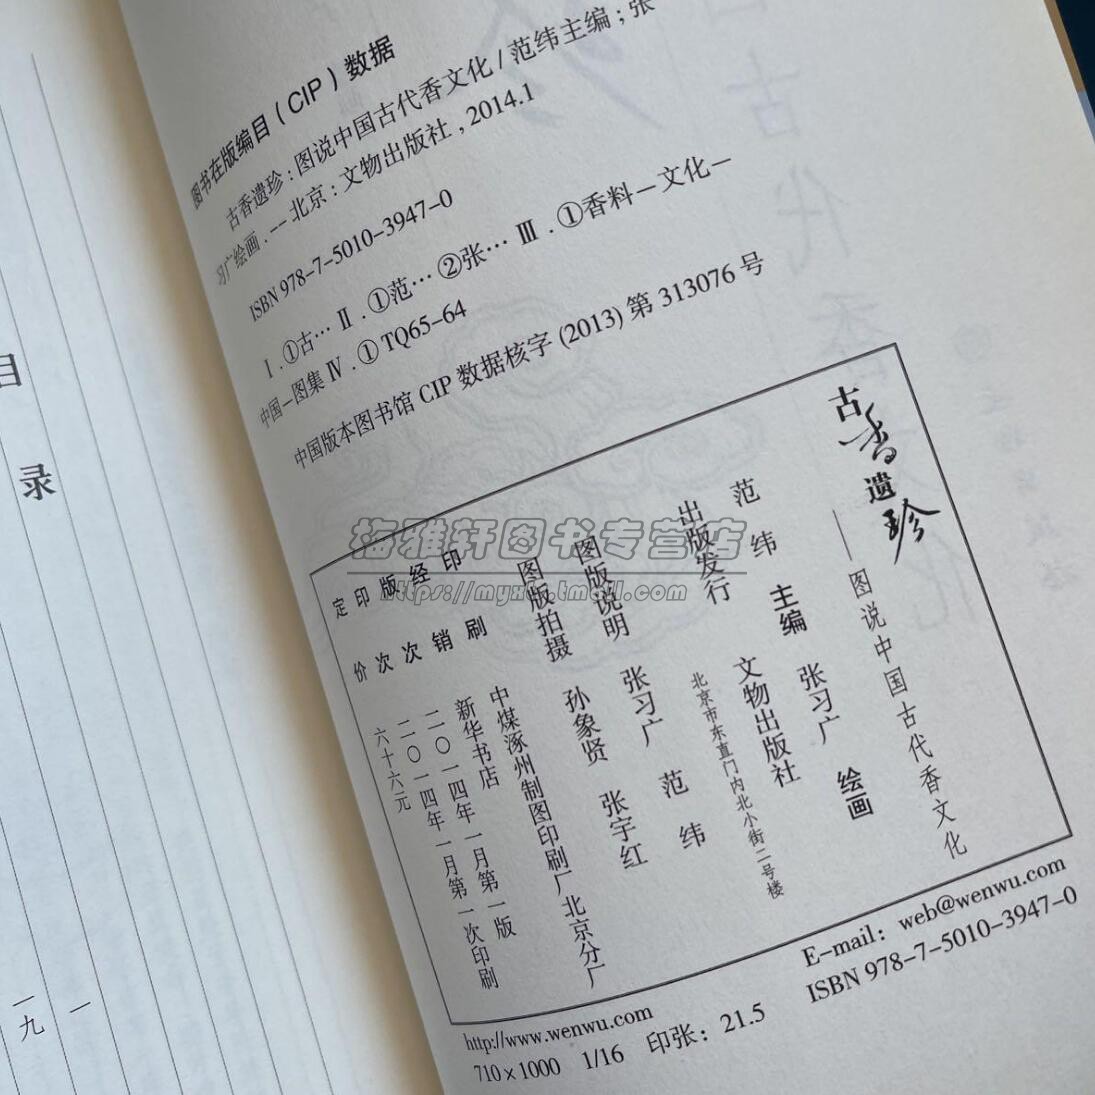 图书在版编目(CIP)数据
古香遗珍:图说中国古代香文化/范纬主编;张
习广绘画.--北京:文物出版社,2014.1
ISBN 978-7-5010-3947-0
Ⅰ.①古… Ⅱ.①范… ②张… Ⅲ.①香料-文化-
中国-图集 Ⅳ.① TQ65-64
中国版本图书馆 CIP 数据核字 (2013) 第 313076 号
古香遗珍
——图说中国古代香文化
范 纬 主编 张习广 绘画
出版发行 文物出版社
北京市东直门内北小街二号楼
图版说明 张习广 范 纬
图版拍摄 孙象贤 张宇红
印 刷 中煤涿州制图印刷厂北京分厂
经 销 新华书店
版 次 二〇一四年一月第一版
印 次 二〇一四年一月第一次印刷
定 价 六十六元
http://www.wenwu.com
E-mail: web@wenwu.com
710×1000 1/16 印张: 21.5
ISBN 978-7-5010-3947-0
目录
一
一九
梅雅轩图书专营店
https://myxts.tmall.com/